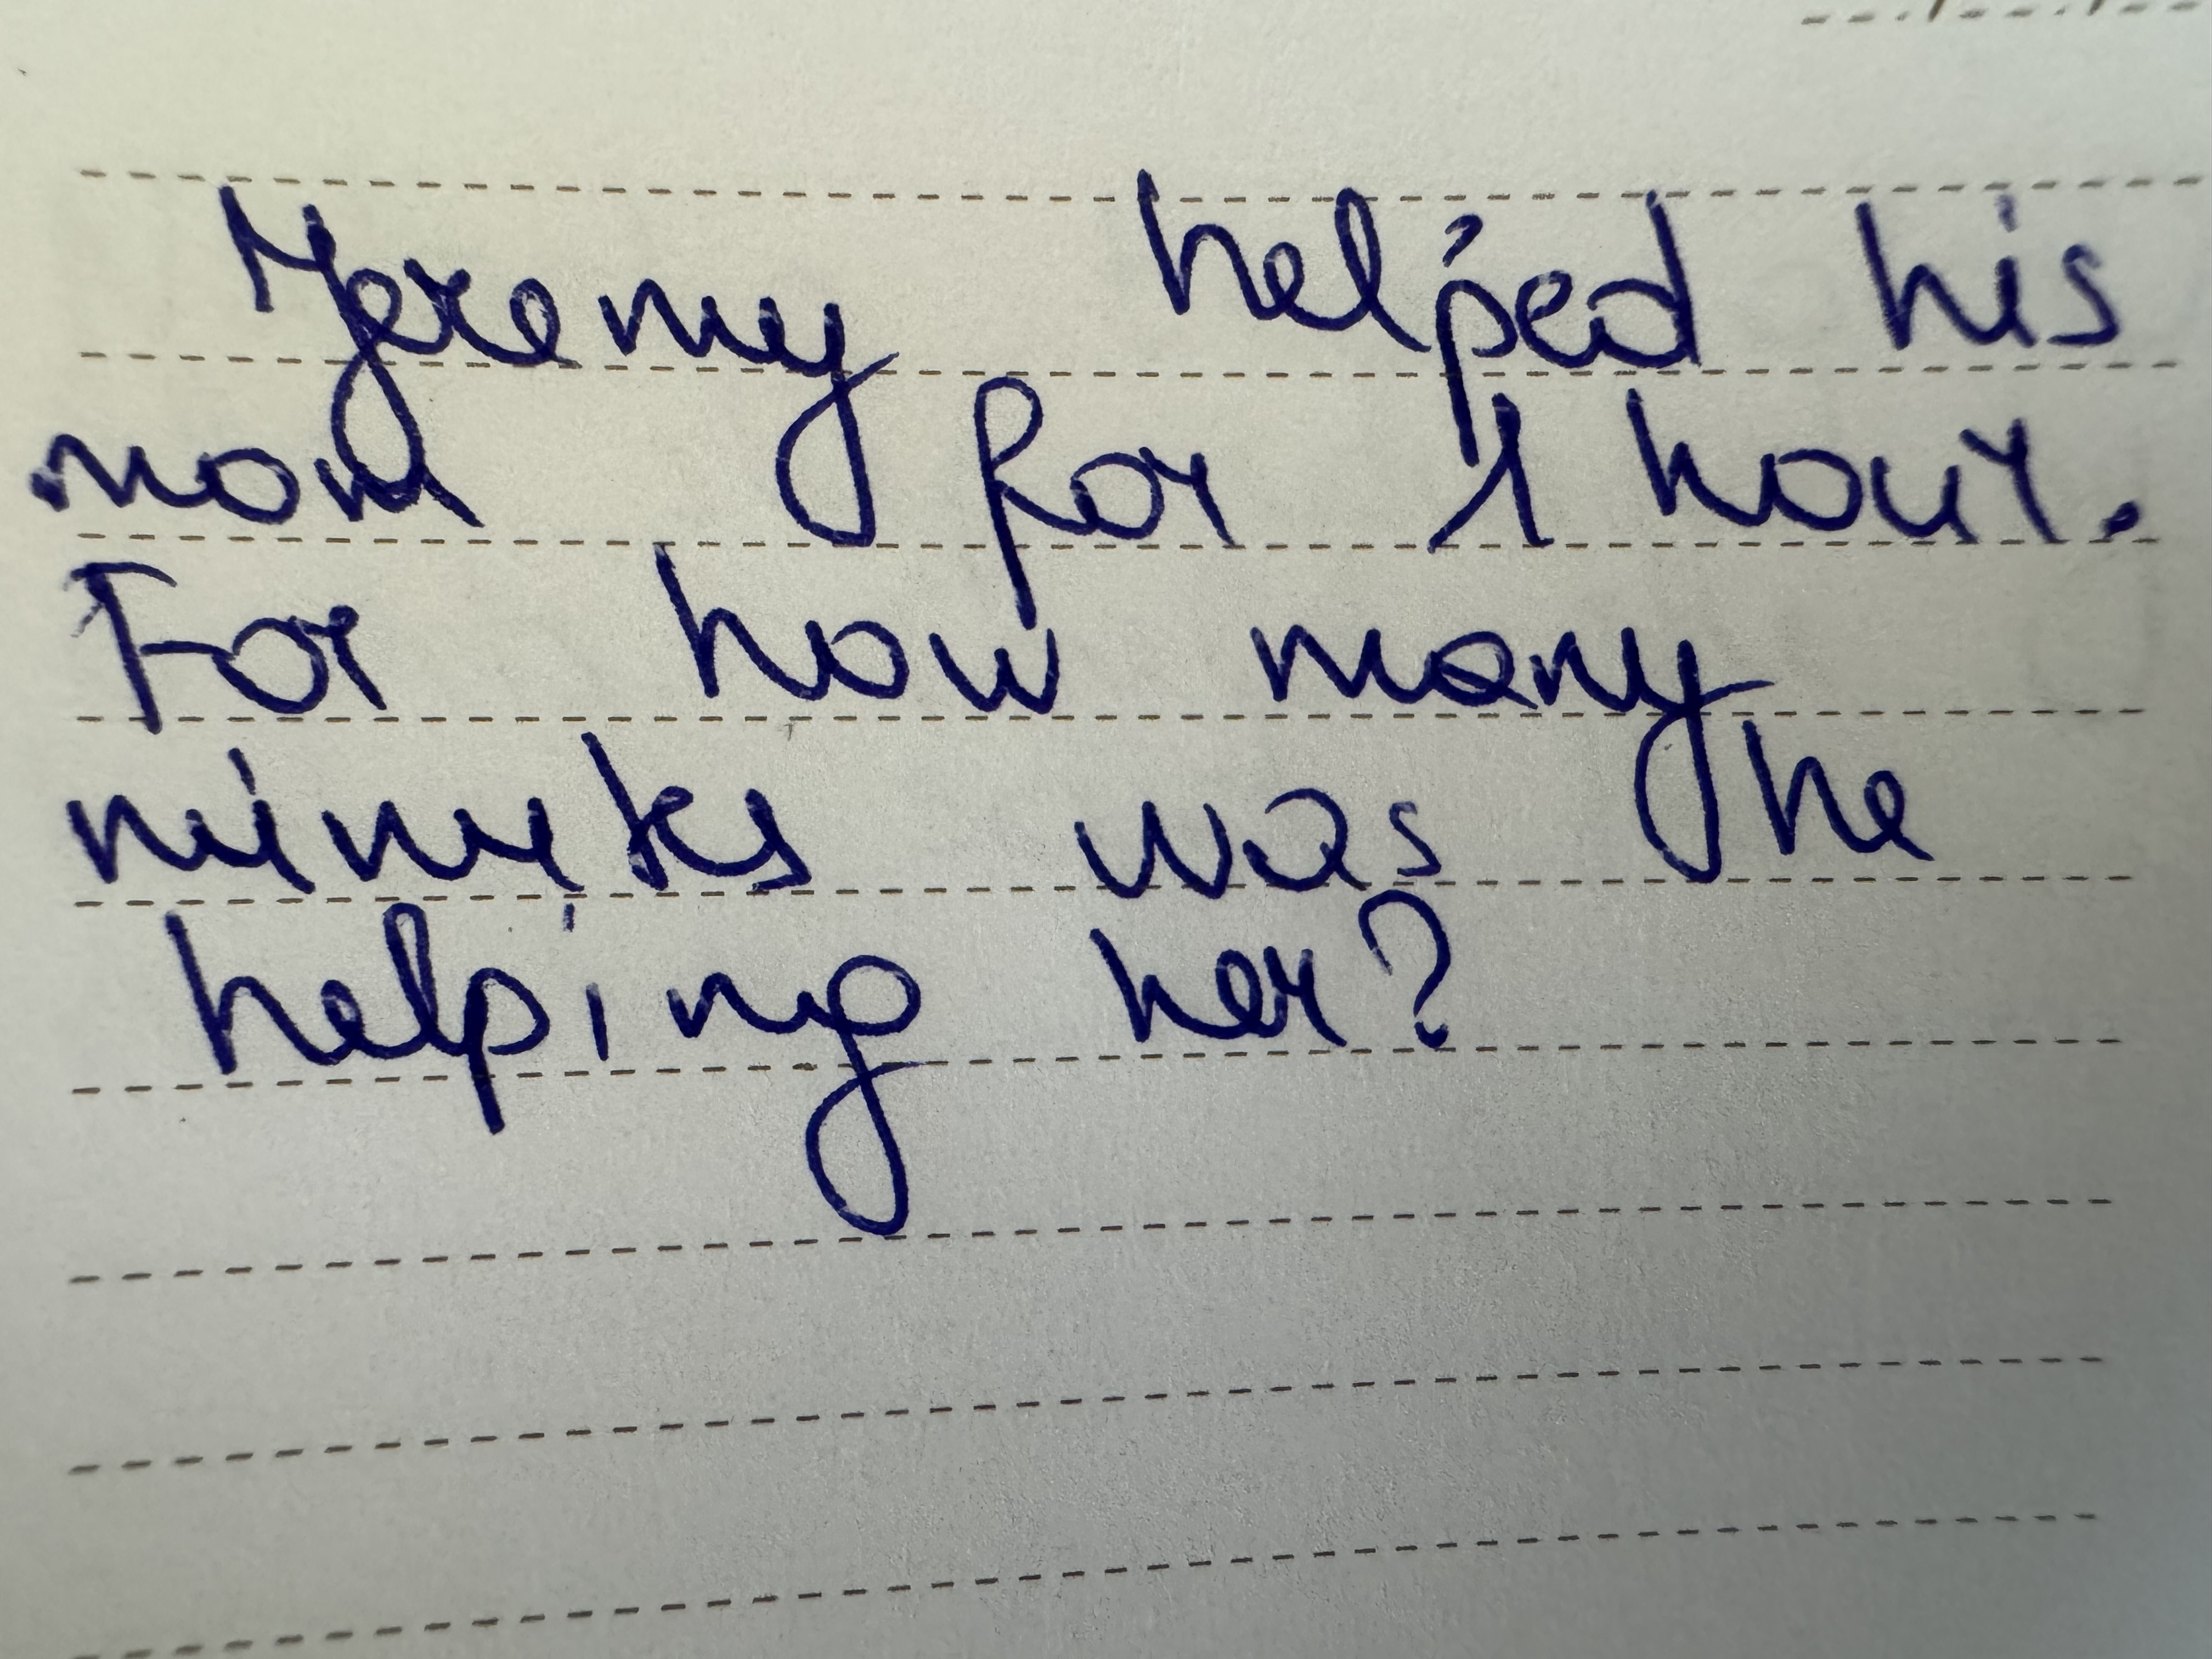 Yeremy helped his
mom for 1 hour.
For how many
minutes was he
helping her?